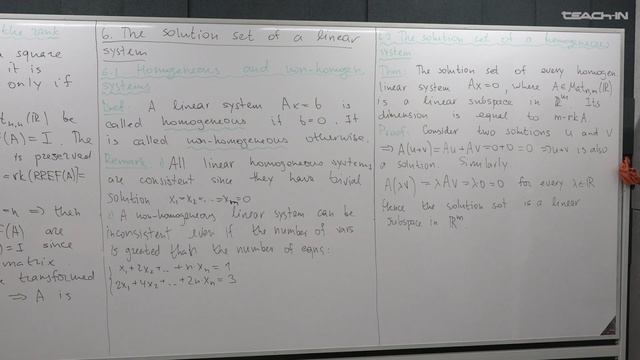 the rank
square
it is
only if
be
(A)=I. The
is preserved
=rk(RREF(A))=
=n => then
F(A) are
)=I since
matrix
transformed
=> A is
6. The solution set of a linear
system
6.1 Homogeneous and non-homogen.
systems
Def: A linear system Ax=b is
called homogeneous if b=0. It
is called non-homogeneous otherwise.
Remark 1) All linear homogeneous systems
are consistent since they have trivial
solution x₁=x₂=...=xₘ=0
2) A non-homogeneous linear system can be
inconsistent even if the number of vars
is greated than the number of eqns:
{ x₁+2x₂+...+n·xₙ=1
2x₁+4x₂+...+2n·xₙ=3
6.2 The solution set of a homogeneous
system
Thm: The solution set of every homogen.
linear system Ax=0, where A∈Matₙ,ₘ(ℝ)
is a linear subspace in ℝᵐ. Its
dimension is equal to m-rkA.
Proof: Consider two solutions u and v
=> A(u+v)=Au+Av=0+0=0 => u+v is also
a solution. Similarly
A(λv)=λAv=λ0=0 for every λ∈ℝ
Hence the solution set is a linear
subspace in ℝᵐ
TEACH-IN